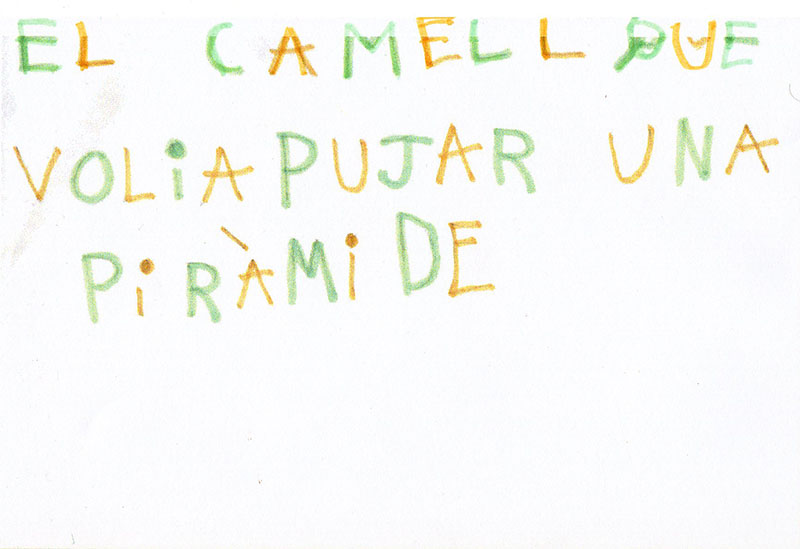 EL CAMELL QUE
VOLiA PUJAR UNA
PiRÀMiDE